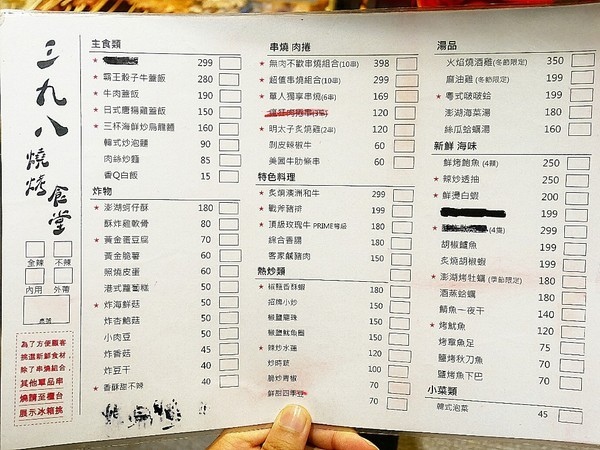 三九八
燒烤食堂
全辣 不辣
內用 外帶
桌號
為了方便顧客
挑選新鮮食材,
除了串燒組合,
其他單品串
燒請至櫃台
展示冰箱挑
主食類
★ 299
★ 霸王骰子牛蓋飯 280
★ 牛肉蓋飯 190
★ 日式唐揚雞蓋飯 150
★ 三杯海鮮炒烏龍麵 160
韓式炒泡麵 90
肉絲炒麵 85
香Q白飯 15
炸物
★ 澎湖蚵仔酥 180
酥炸雞軟骨 80
★ 黃金蛋豆腐 70
黃金脆薯 60
照燒皮蛋 60
港式蘿蔔糕 50
★ 炸海鮮菇 50
炸杏鮑菇 50
小肉豆 50
炸香菇 45
炸豆干 40
★ 香酥甜不辣 40
串燒 肉捲
★ 無肉不歡串燒組合(10串) 398
★ 超值串燒組合(10串) 299
★ 單人獨享串燒(6串) 169
120
★ 明太子炙燒雞(2串) 120
剝皮辣椒牛 60
美國牛肋條串 60
特色料理
★ 炙燒澳洲和牛 299
★ 戰斧豬排 199
★ 頂級玫瑰牛 PRIME等級 199
綜合香腸 180
客家鹹豬肉 150
熱炒類
★ 椒鹽香酥蝦 180
招牌小炒 150
椒鹽龍珠 150
椒鹽魷魚圈 150
★ 辣炒水蓮 120
炒時蔬 100
脆炒青椒 70
鮮甜四季豆 70
湯品
火焰燒酒雞(冬節限定) 350
麻油雞(冬節限定) 199
★ 粵式啵啵蛤 199
澎湖海菜湯 180
絲瓜蛤蠣湯 160
新鮮 海味
鮮烤鮑魚(4顆) 250
★ 辣炒透抽 250
★ 鮮燙白蝦 200
199
★ (4隻) 299
胡椒鱸魚 199
炙燒胡椒蝦 199
★ 澎湖烤牡蠣(季節限定) 180
酒蒸蛤蠣 180
鯖魚一夜干 140
★ 烤魷魚 120
烤章魚足 75
鹽烤秋刀魚 50
鹽烤魚下巴 70
小菜類
韓式泡菜 45